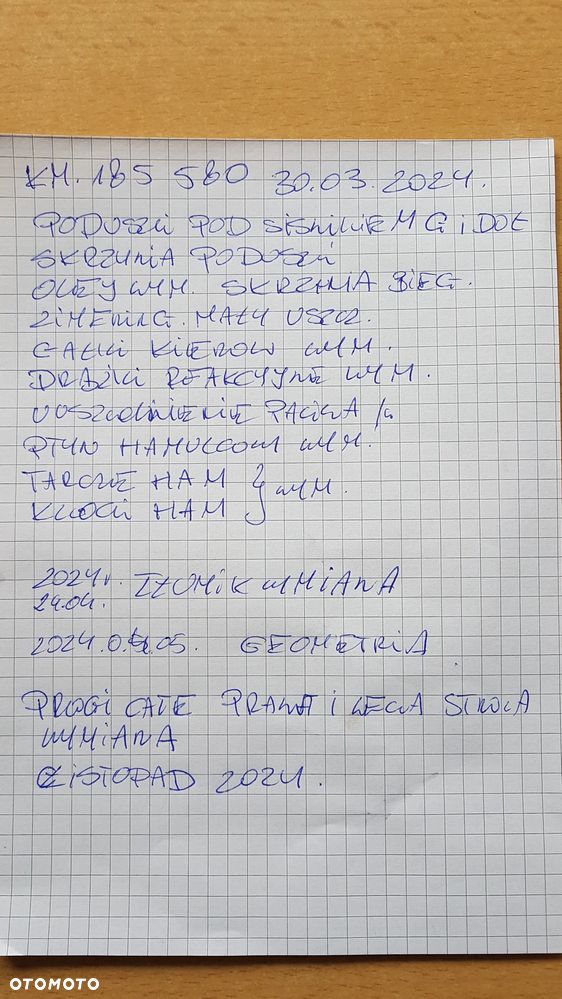 KM. 185 580 30.03.2024.
PODUSZKI POD SILNIKIEM G i DÓŁ
SKRZYNIA PODUSZKI
OLEJ WYM. SKRZYNIA BIEG.
ZIMERING. MAŁY USZCZ.
GAŁKI KIEROW WYM.
DRĄŻKI REAKCYJNE WYM.
PALIWA
PŁYN HAMULCOWY WYM.
TARCZE HAM } WYM.
KLOCKI HAM
2024r. TŁUMIK WYMIANA
24.04.
2024. 05. GEOMETRIA
PROGI CAŁE PRAWA i LEWA STRONA
WYMIANA
LISTOPAD 2024.
OTOMOTO